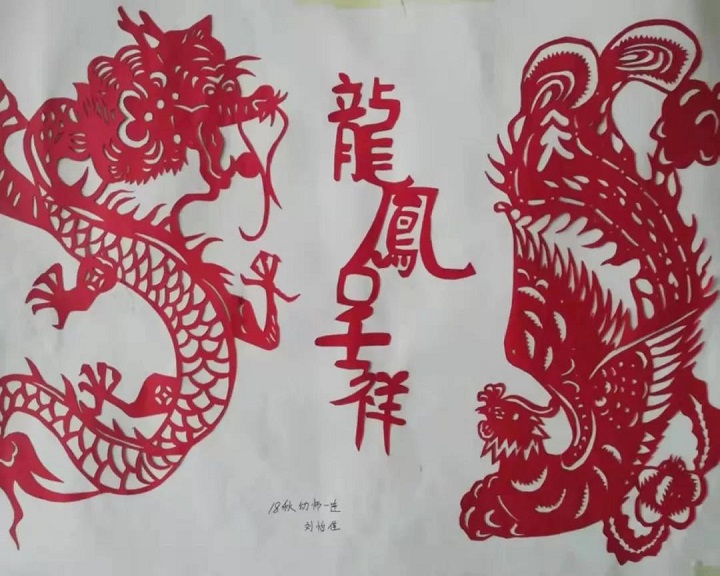 龍鳳呈祥
18秋幼师一连
刘怡佳